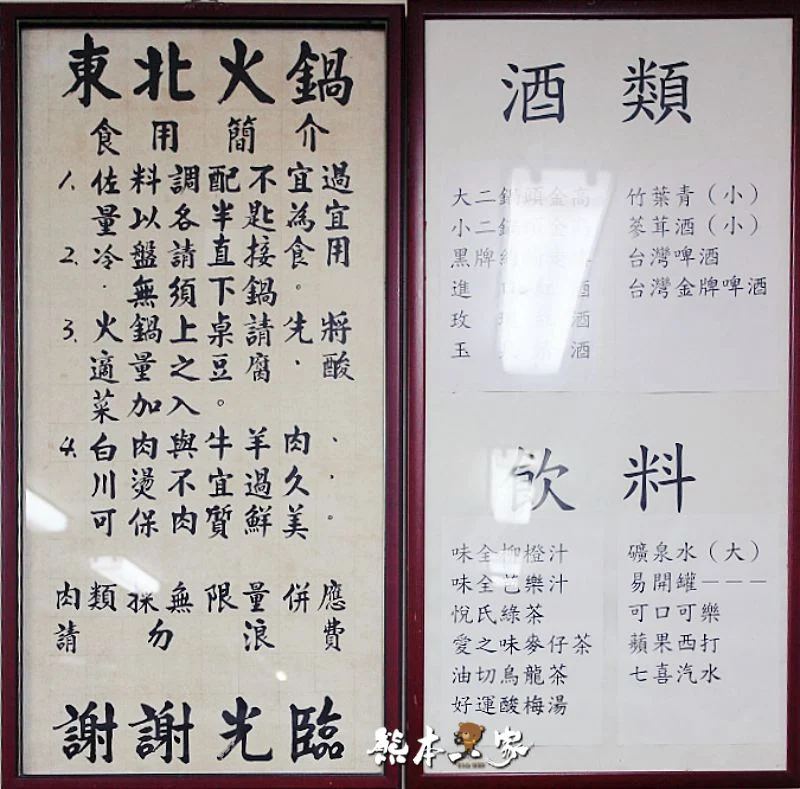 東北火鍋
食用簡介
1. 佐料調配不宜過
量以各半匙為宜
2. 冷盤請直接食用
·無須下鍋。
3. 火鍋上桌請先將
適量之豆腐,酸
菜加入。
4. 白肉與牛羊肉·
川燙不宜過久·
可保肉質鮮美。
肉類採無限量併應
請勿浪費
謝謝光臨
酒類
大二鍋頭金高
小二鍋
黑牌
進口 酒
玫 酒
玉 酒
竹葉青（小）
蔘茸酒（小）
台灣啤酒
台灣金牌啤酒
飲料
味全柳橙汁
味全芭樂汁
悅氏綠茶
愛之味麥仔茶
油切烏龍茶
好運酸梅湯
礦泉水（大）
易開罐－－－
可口可樂
蘋果西打
七喜汽水
熊本一家